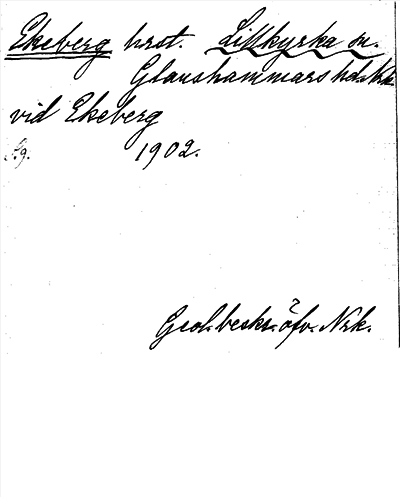 Ekeberg hrst. Lillkyrka sn.
Glanshammars hd. Nrk.
vid Ekeberg
1902.
Geol. beskr. öfv. Nrk.